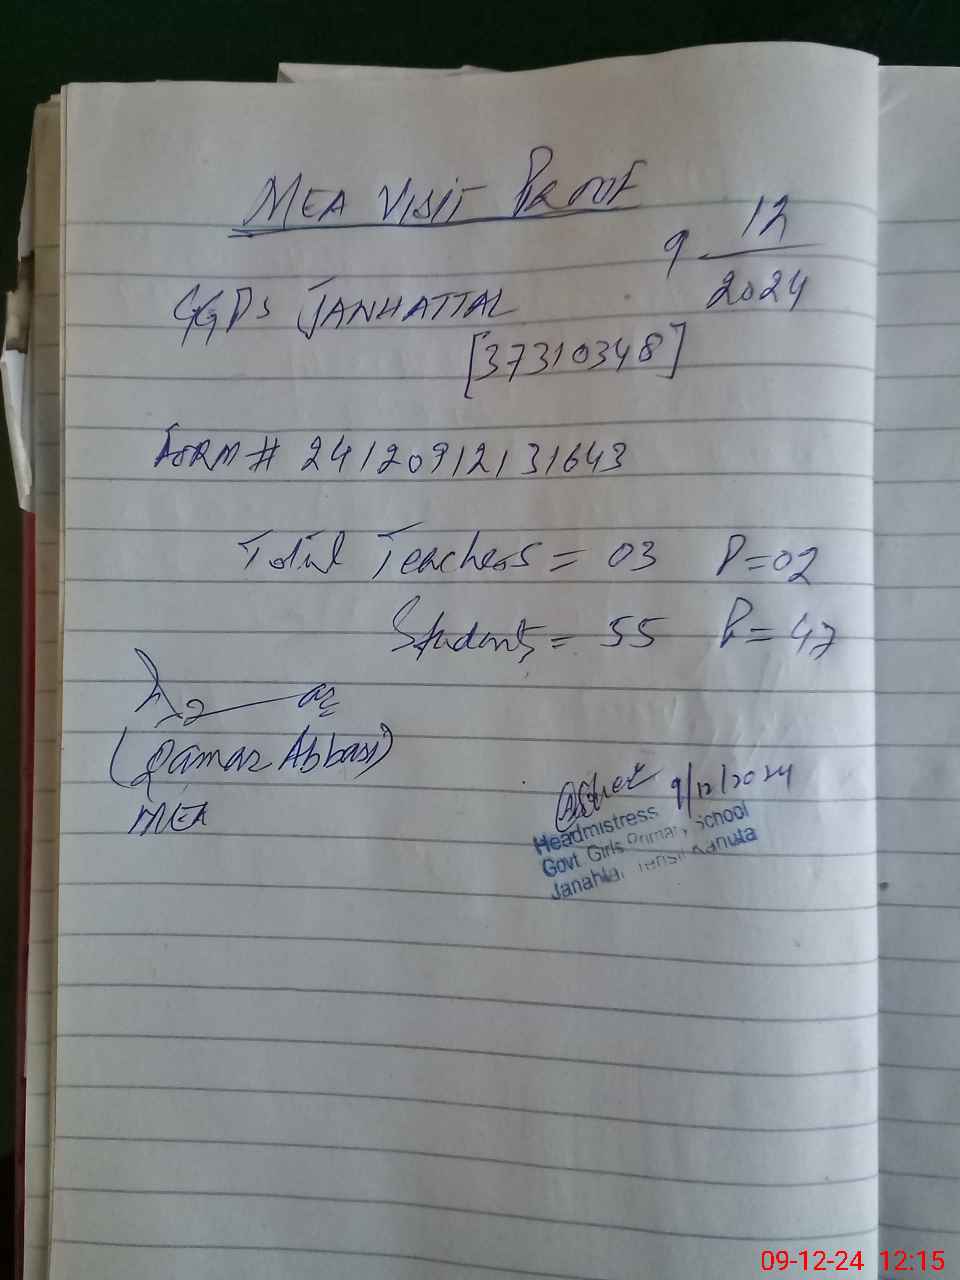 MEA VISIT PROOF
9 12
2024
GGPS JANHATTAL
[37310348]
FORM # 24120912131643
Total Teachers = 03 P=02
Students = 55 P= 47
(Qamar Abbasi)
MEA
9/12/2024
Headmistress
Govt. Girls Primary School
09-12-24 12:15